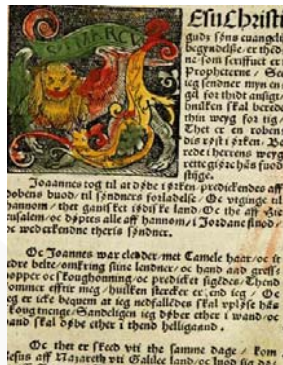 S MARCV
Esu Christi
guds søns euangeli
begyndelße/ er thed
ne som scriffuet er
Propheterne/ Se
ieg sendner myn en
gel for thit ansigt/
huilken skal berede
thin weyg for tig/
Thet er en robens
dis røst i ørken/ Be
rede i herrens weyg
rette giøre hans fuod
stijge.
Joannes tog til at døbe i ørken/ predickendes aff
dobens buod/ til søndners forladelse/ Oc vtginge til
hannom/ ther gansket iødiske land/ Oc the aff Hie
rusalem/ oc døptes alle aff hannom/ i Jordane flwod/
oc wederkendne theris søndner.
Oc Joannes war cleder met Camele haar/ oc it
edre belte/ omkring sine lendner/ oc hand aad gress
hopper oc skoughonning/ oc predicket sigendes/ Thend
kommer effter mig/ huilken stercker er end ieg/ Oc
eg er icke bequem at ieg nedfalldes skal vpløse hans
skoug tuenge/ Sandeligen ieg døber ether i wand/ oc
hand skal døbe ether i thend helligaand.
Oc thet er skeed vti the samme dage/ kom
Jesus aff Nazareth vti Galilee land/ oc lwod sig dø/